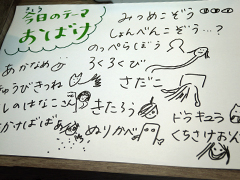 きょう
今日のテーマ
おばけ
みつめこぞう
しょんべんこぞう…?
のっぺらぼう
ろくろくび
あかなめ
さだこ
ゅうびきつね
しのはなこさん
きたろう
ドラキュラ
かけばばあ
ぬりかべ
くちさけおん